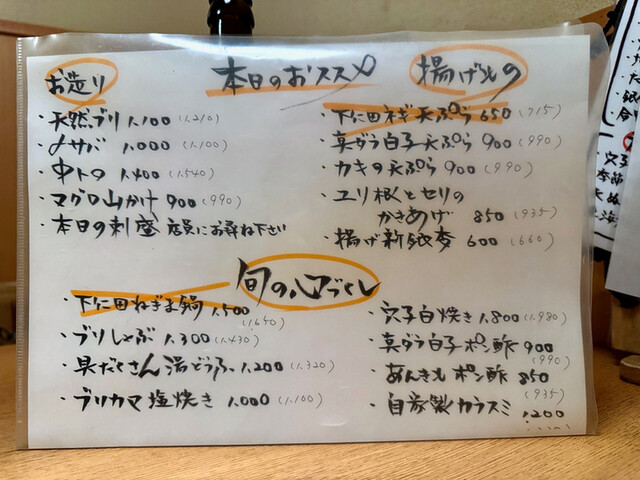 本日のおススメ
お造り
・天然ブリ 1,100 (1,210)
・〆サバ 1,000 (1,100)
・中トロ 1,400 (1,540)
・マグロ山かけ 900 (990)
・本日の刺盛 店員にお尋ね下さい
揚げもの
・下仁田ネギ天ぷら 650 (715)
・真ダラ白子天ぷら 900 (990)
・カキの天ぷら 900 (990)
・ユリ根とセリの
かきあげ 850 (935)
・揚げ新銀杏 600 (660)
旬の心づくし
・下仁田ねぎま鍋 1,500
(1,650)
・ブリしゃぶ 1,300 (1,430)
・具だくさん湯どうふ 1,200 (1,320)
・ブリカマ塩焼き 1,000 (1,100)
・穴子白焼き 1,800 (1,980)
・真ダラ白子ポン酢 900
(990)
・あんきもポン酢 850
(935)
・自家製カラスミ 1,200